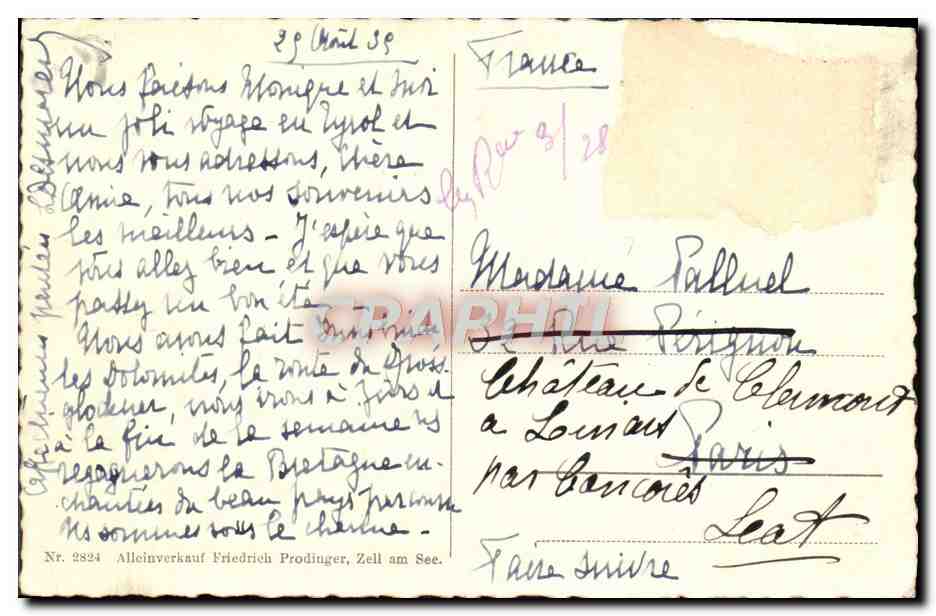 29 Août 39
Nous faisons Monique et moi
un joli voyage en Tyrol et
nous vous adressons, Chère
Amie, tous nos souvenirs
les meilleurs - J'espère que
vous allez bien et que vous
passez un bon été
Nous avons fait
les Dolomites, la route du Gross
glockner, nous irons à
à la fin de la semaine ns
regagnerons la Bretagne en-
chantées du beau pays parcouru
ns sommes sous le charme -
pensées
Nr. 2824 Alleinverkauf Friedrich Prodinger, Zell am See.
France
3/28
Madame Palluel
32 Rue Pérignon
Château de Clermont
a
Paris
par Concorès
Lot
Faire suivre
CPAPHIL